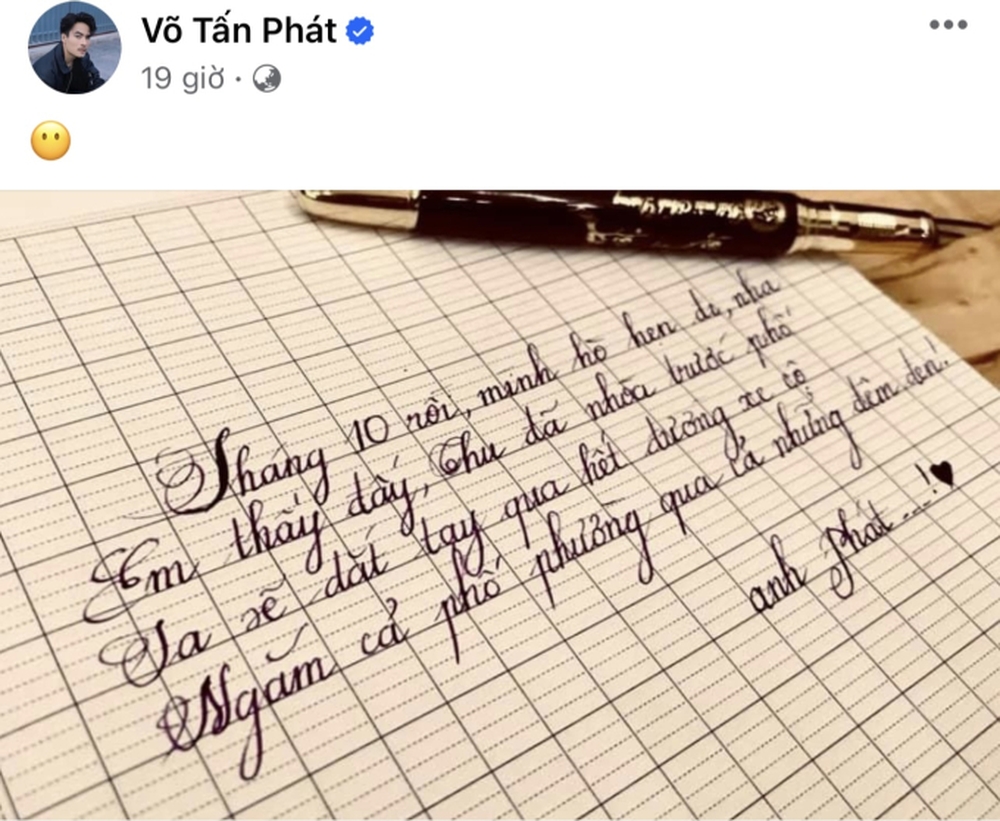 Võ Tấn Phát
19 giờ
Tháng 10 rồi, mình hò hẹn đi, nha
Em thấy đấy, Thu đã nhòa trước phố
Ta sẽ dắt tay qua hết đường xe cộ
Ngắm cả phố phường qua cả những đêm đen.
anh Phát...!♥